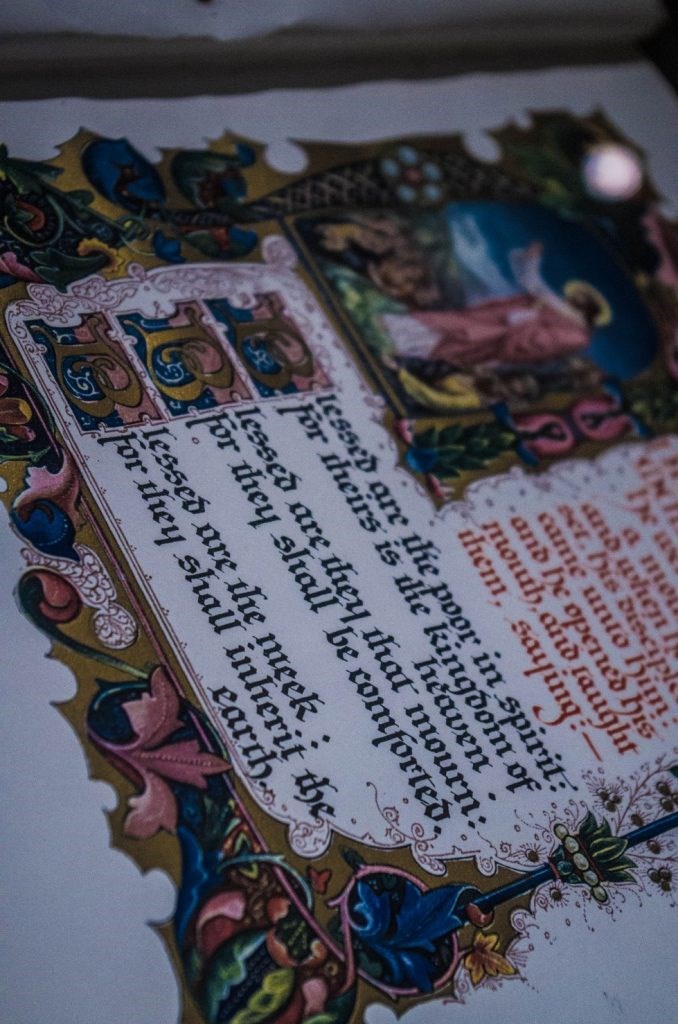 a
and when
set, his
came unto him:
and he opened his
mouth, and taught
them, saying:—
Blessed are the poor in spirit:
for theirs is the kingdom of
heaven.
Blessed are they that mourn:
for they shall be comforted.
Blessed are the meek:
for they shall inherit the
earth.